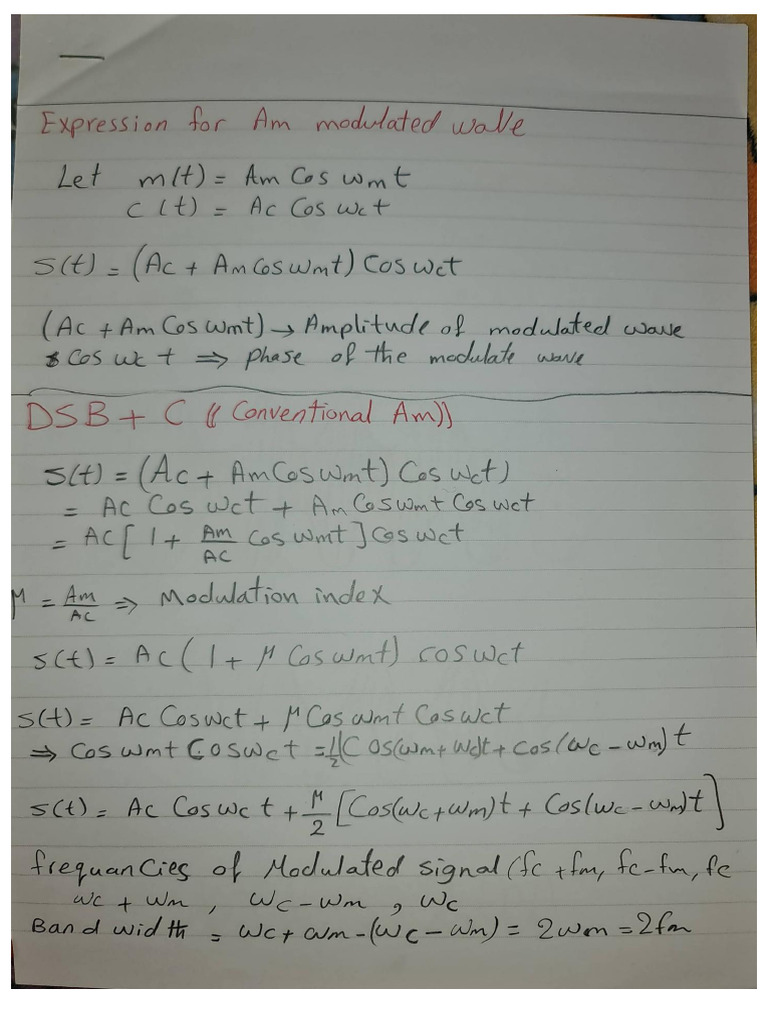 Expression for Am modulated wave
Let m(t) = Am Cos wmt
c(t) = Ac Cos wct
S(t) = (Ac + Am Cos wmt) Cos wct
(Ac + Am Cos wmt) → Amplitude of modulated wave
Cos wc t ⇒ phase of the modulate wave
DSB + C ((Conventional Am))
S(t) = (Ac + Am Cos wmt) Cos wct)
= Ac Cos wct + Am Cos wmt Cos wct
= AC [ 1 + Am/AC Cos wmt ] Cos wct
μ = Am/AC ⇒ Modulation index
S(t) = AC ( 1 + μ Cos wmt) cos wct
S(t) = Ac Cos wct + μ Cos wmt Cos wct
⇒ Cos wmt Cos wct = 1/2 (Cos(wm + wc)t + Cos(wc - wm)t
S(t) = Ac Cos wc t + μ/2 [Cos(wc + wm)t + Cos(wc - wm)t]
frequancies of Modulated signal (fc + fm, fc - fm, fc
wc + wm , wc - wm , wc
Band width = wc + wm - (wc - wm) = 2wm = 2fm